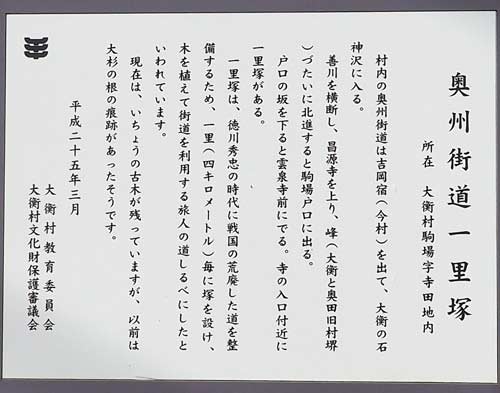 奥州街道一里塚
所在　大衡村駒場字寺田地内
村内の奥州街道は吉岡宿（今村）を出て、大衡の石
神沢に入る。
善川を横断し、昌源寺を上り、峰（大衡と奥田旧村堺
）づたいに北進すると駒場戸口に出る。
戸口の坂を下ると雲泉寺前にでる。寺の入口付近に
一里塚がある。
一里塚は、徳川秀忠の時代に戦国の荒廃した道を整
備するため、一里（四キロメートル）毎に塚を設け、
木を植えて街道を利用する旅人の道しるべにしたと
いわれています。
現在は、いちょうの古木が残っていますが、以前は
大杉の根の痕跡があったそうです。
平成二十五年三月
大衡村教育委員会
大衡村文化財保護審議会